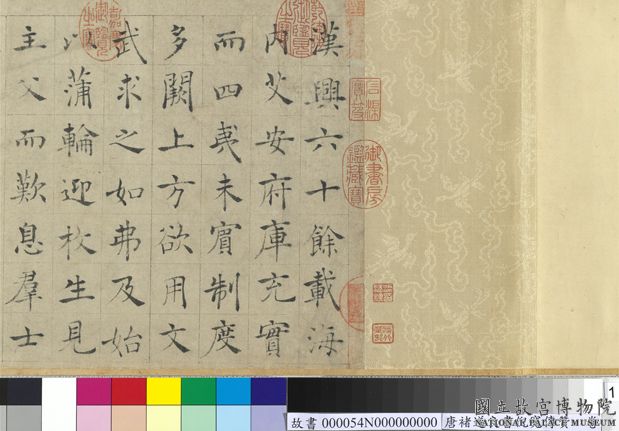 漢興六十餘載海
内艾安府庫充實
而四夷未賓制度
多闕上方欲用文
武求之如弗及始
以蒲輪迎枚生見
主父而歎息羣士
石渠寶笈
御書房鑑藏寶
1
國立故宮博物院
NATIONAL PALACE MUSEUM
故書 000054N000000000 唐褚遂良書倪寬傳贊